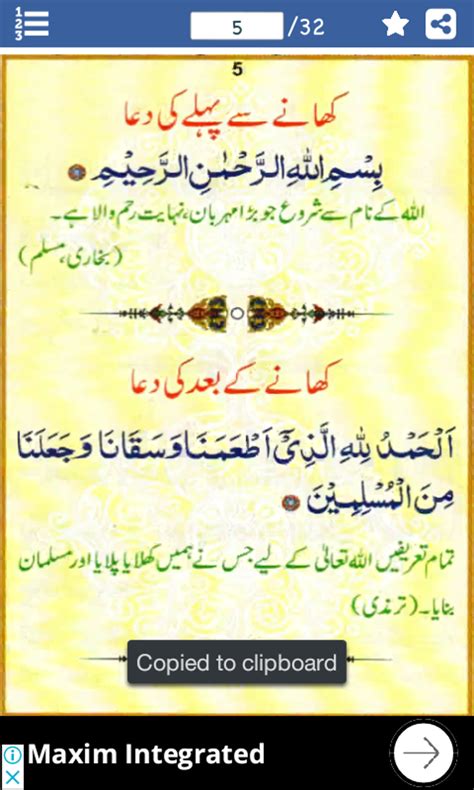 1
2
3
5 /32
5
کھانے سے پہلے کی دعا
بِسْمِ اللهِ الرَّحْمٰنِ الرَّحِيْمِ
اللہ کے نام سے شروع جو بڑا مہربان، نہایت رحم والا ہے۔
(بخاری، مسلم)
کھانے کے بعد کی دعا
اَلْحَمْدُ لِلهِ الَّذِىْٓ اَطْعَمَنَا وَسَقَانَا وَجَعَلَنَا
مِنَ الْمُسْلِمِيْنَ
تمام تعریفیں اللہ تعالیٰ کے لیے جس نے ہمیں کھلایا پلایا اور مسلمان
بنایا۔ (ترمذی)
Copied to clipboard
Maxim Integrated